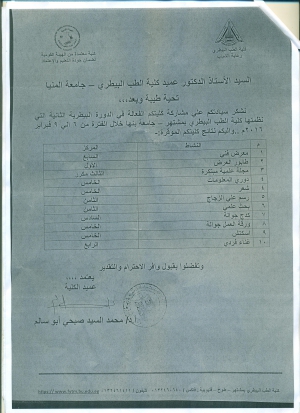 السيد الأستاذ الدكتور عميد كلية الطب البيطري – جامعة المنيا
تحية طيبة وبعد،،،،
نشكر سيادتكم علي مشاركة كليتكم الفعالة في الدورة البيطرية الثانية التي
نظمتها كلية الطب البيطري بمشتهر – جامعة بنها خلال الفترة من ١ الي ٦ فبراير
٢٠١٦، واليكم نتائج كليتكم الموقرة:-
م النشاط المركز
١ معرض فني السابع
٢ طابور العرض الأول
٣ مجلة علمية مبتكرة الثالث مكرر
٤ دوري المعلومات الخامس
٥ شعر الخامس
٦ رسم علي الزجاج الثامن
٧ بحث علمي الثامن
٨ جوالة السادس
٩ ورقة العمل جوالة الخامس
اسكتش الخامس
١٠ غناء فردي الرابع
وتفضلوا بقبول وافر الاحترام والتقدير
يعتمد ،،،،
عميد الكلية
أ.د/ محمد السيد صبحي أبو سالم